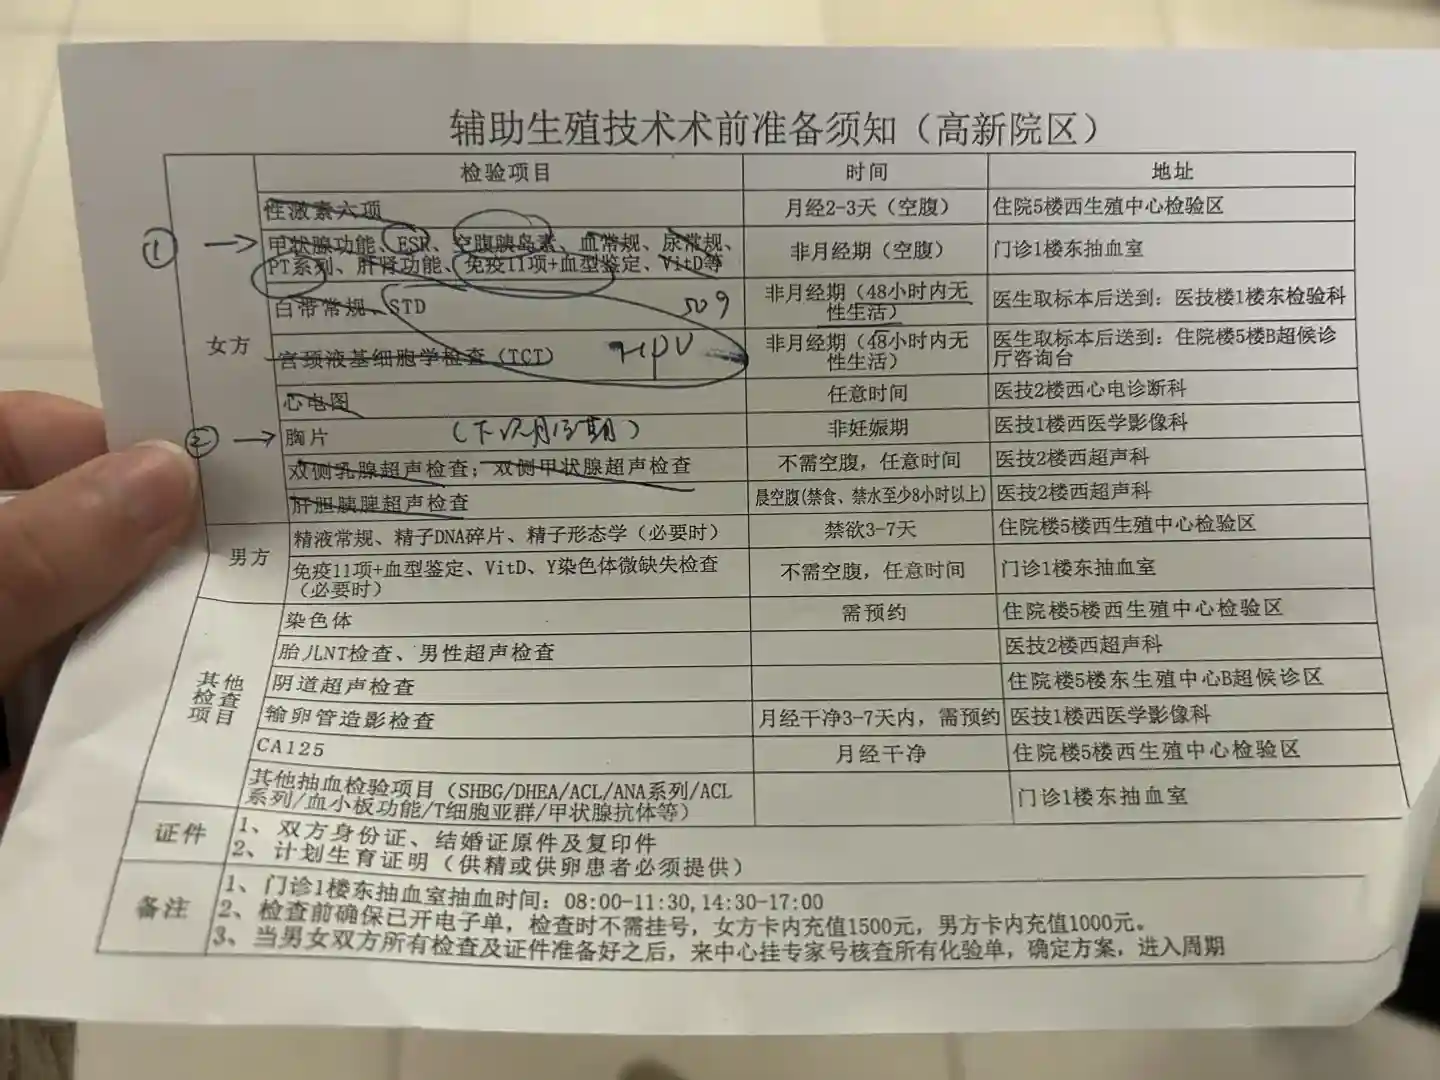 辅助生殖技术术前准备须知（高新院区）
检验项目 时间 地址
女方
性激素六项 月经2-3天（空腹） 住院5楼西生殖中心检验区
① → 甲状腺功能、ESR、空腹胰岛素、血常规、尿常规、
PT系列、肝肾功能、免疫11项+血型鉴定、VitD等 非月经期（空腹） 门诊1楼东抽血室
白带常规、STD 509 非月经期（48小时内无
性生活） 医生取标本后送到：医技楼1楼东检验科
宫颈液基细胞学检查（TCT） HPV 非月经期（48小时内无
性生活） 医生取标本后送到：住院楼5楼B超候诊
厅咨询台
心电图 任意时间 医技2楼西心电诊断科
② → 胸片 （下次月经期） 非妊娠期 医技1楼西医学影像科
双侧乳腺超声检查；双侧甲状腺超声检查 不需空腹，任意时间 医技2楼西超声科
肝胆胰脾超声检查 晨空腹(禁食、禁水至少8小时以上) 医技2楼西超声科
男方
精液常规、精子DNA碎片、精子形态学（必要时） 禁欲3-7天 住院楼5楼西生殖中心检验区
免疫11项+血型鉴定、VitD、Y染色体微缺失检查
（必要时） 不需空腹，任意时间 门诊1楼东抽血室
其他
检查
项目
染色体 需预约 住院楼5楼西生殖中心检验区
胎儿NT检查、男性超声检查 医技2楼西超声科
阴道超声检查 住院楼5楼东生殖中心B超候诊区
输卵管造影检查 月经干净3-7天内，需预约 医技1楼西医学影像科
CA125 月经干净 住院楼5楼西生殖中心检验区
其他抽血检验项目（SHBG/DHEA/ACL/ANA系列/ACL
系列/血小板功能/T细胞亚群/甲状腺抗体等） 门诊1楼东抽血室
证件
1、双方身份证、结婚证原件及复印件
2、计划生育证明（供精或供卵患者必须提供）
备注
1、门诊1楼东抽血室抽血时间：08:00-11:30,14:30-17:00
2、检查前确保已开电子单，检查时不需挂号，女方卡内充值1500元，男方卡内充值1000元。
3、当男女双方所有检查及证件准备好之后，来中心挂专家号核查所有化验单，确定方案，进入周期